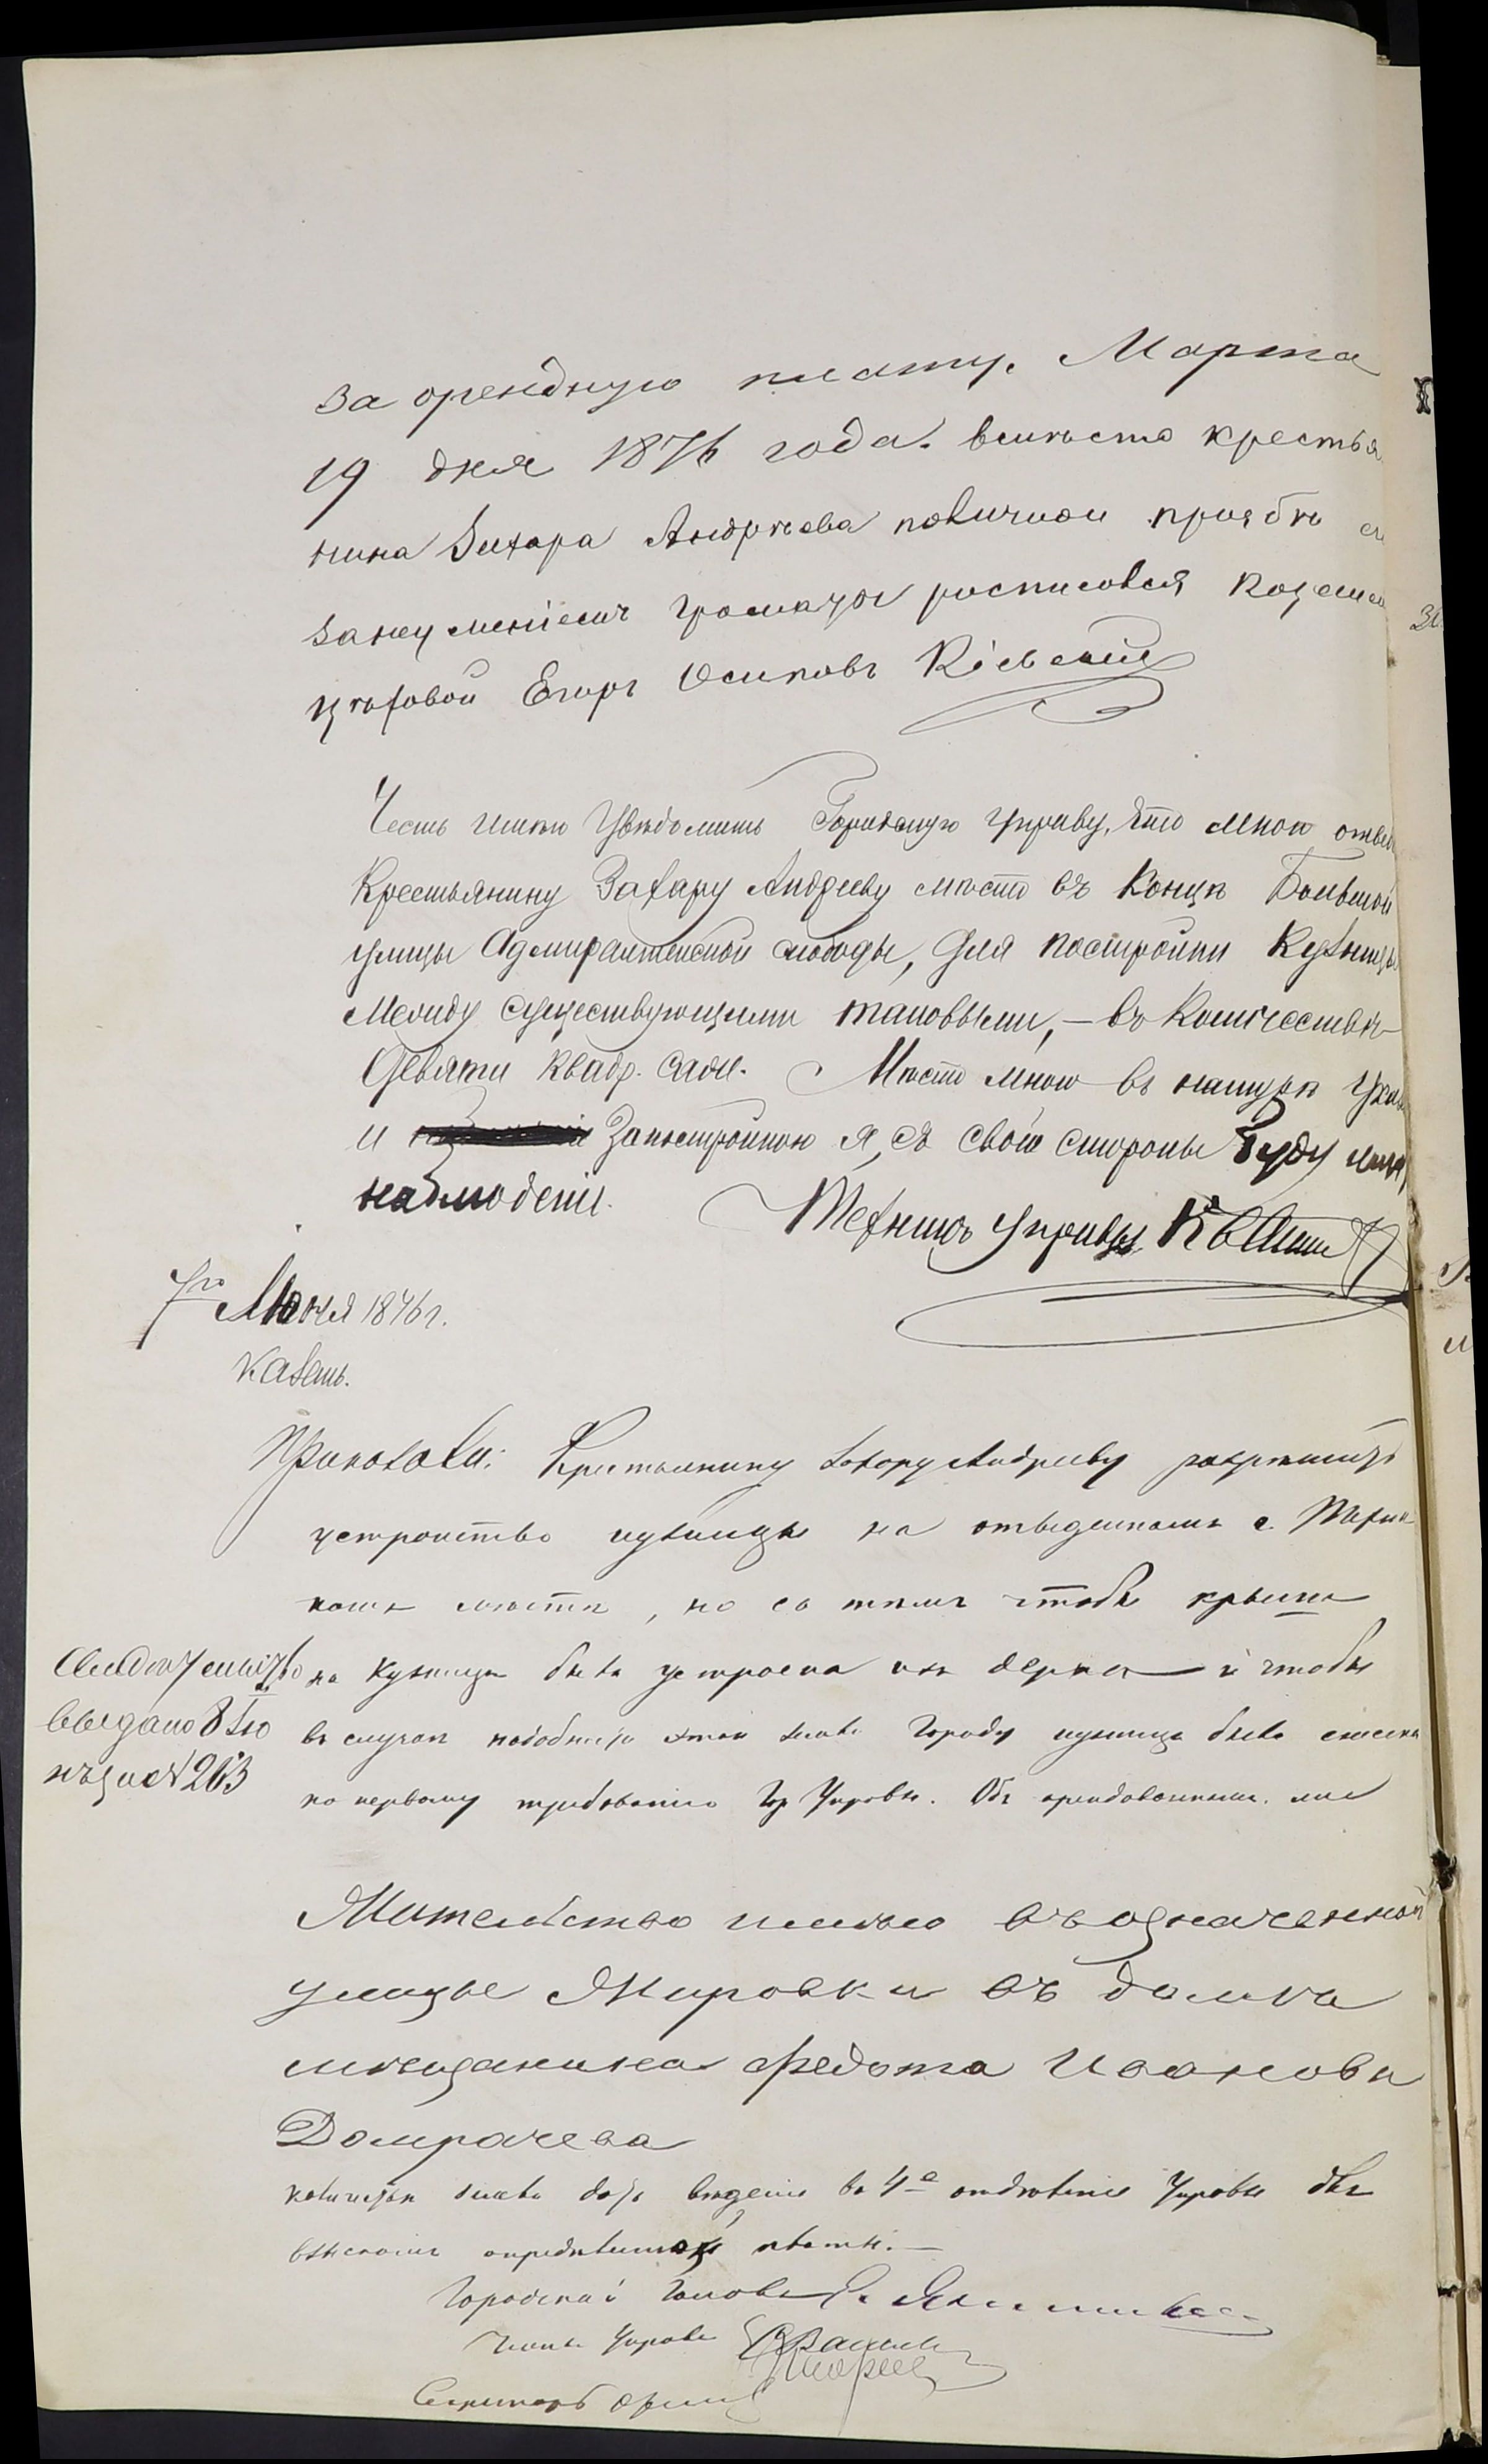 за орендную плату. Марта
19 дня 1876 года. вместо крестья
нина Захара Андреева поличной прозбе
занеуменіемъ грамоты росписовся Казанск
цеховой Егоръ Осиповъ Кіевскій
Честь имѣю Увѣдомить Городскую Управу, что мною отве
Крестьянину Захару Андрееву мѣсто въ Концѣ Большой
улицы Адмиралтейской слободы, для постройки Кузницы
Между существующими таковыми, — въ Количествѣ
Девяти Квадр. саж. Мѣсто мною въ натурѣ Ука
и За постройкою я, съ своей стороны буду имѣт
наблюденіе.
Техникъ Управы
7го Июня 1876 г.
Казань.
Приказали: Крестьянину Захару Андрееву разрѣшить
устройство кузницы на отведенномъ г. Техни
комъ мѣстѣ, но съ тѣмъ чтобы крыша
на кузницѣ была устроена изъ дерна и чтобы
въ случаѣ надобности этой земли Городу кузница была снесена
по первому требованію Гор Управы. Объ арендованным.
Свидѣтельство
выдано 8 Iю
нъ за № 263
Жительство имѣю въ означенной
улице Жировки въ доме
мѣщанина Федота Иванова
Домрачева
количествѣ земли дать въ 4е отдѣленіе Управы для
взысканія опредѣленной платы. —
Городской Голова
Члены Управы
Секретарь